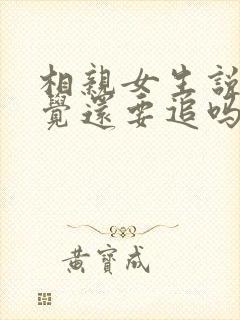 相親女生說
覺還要追嗎
黃寶成